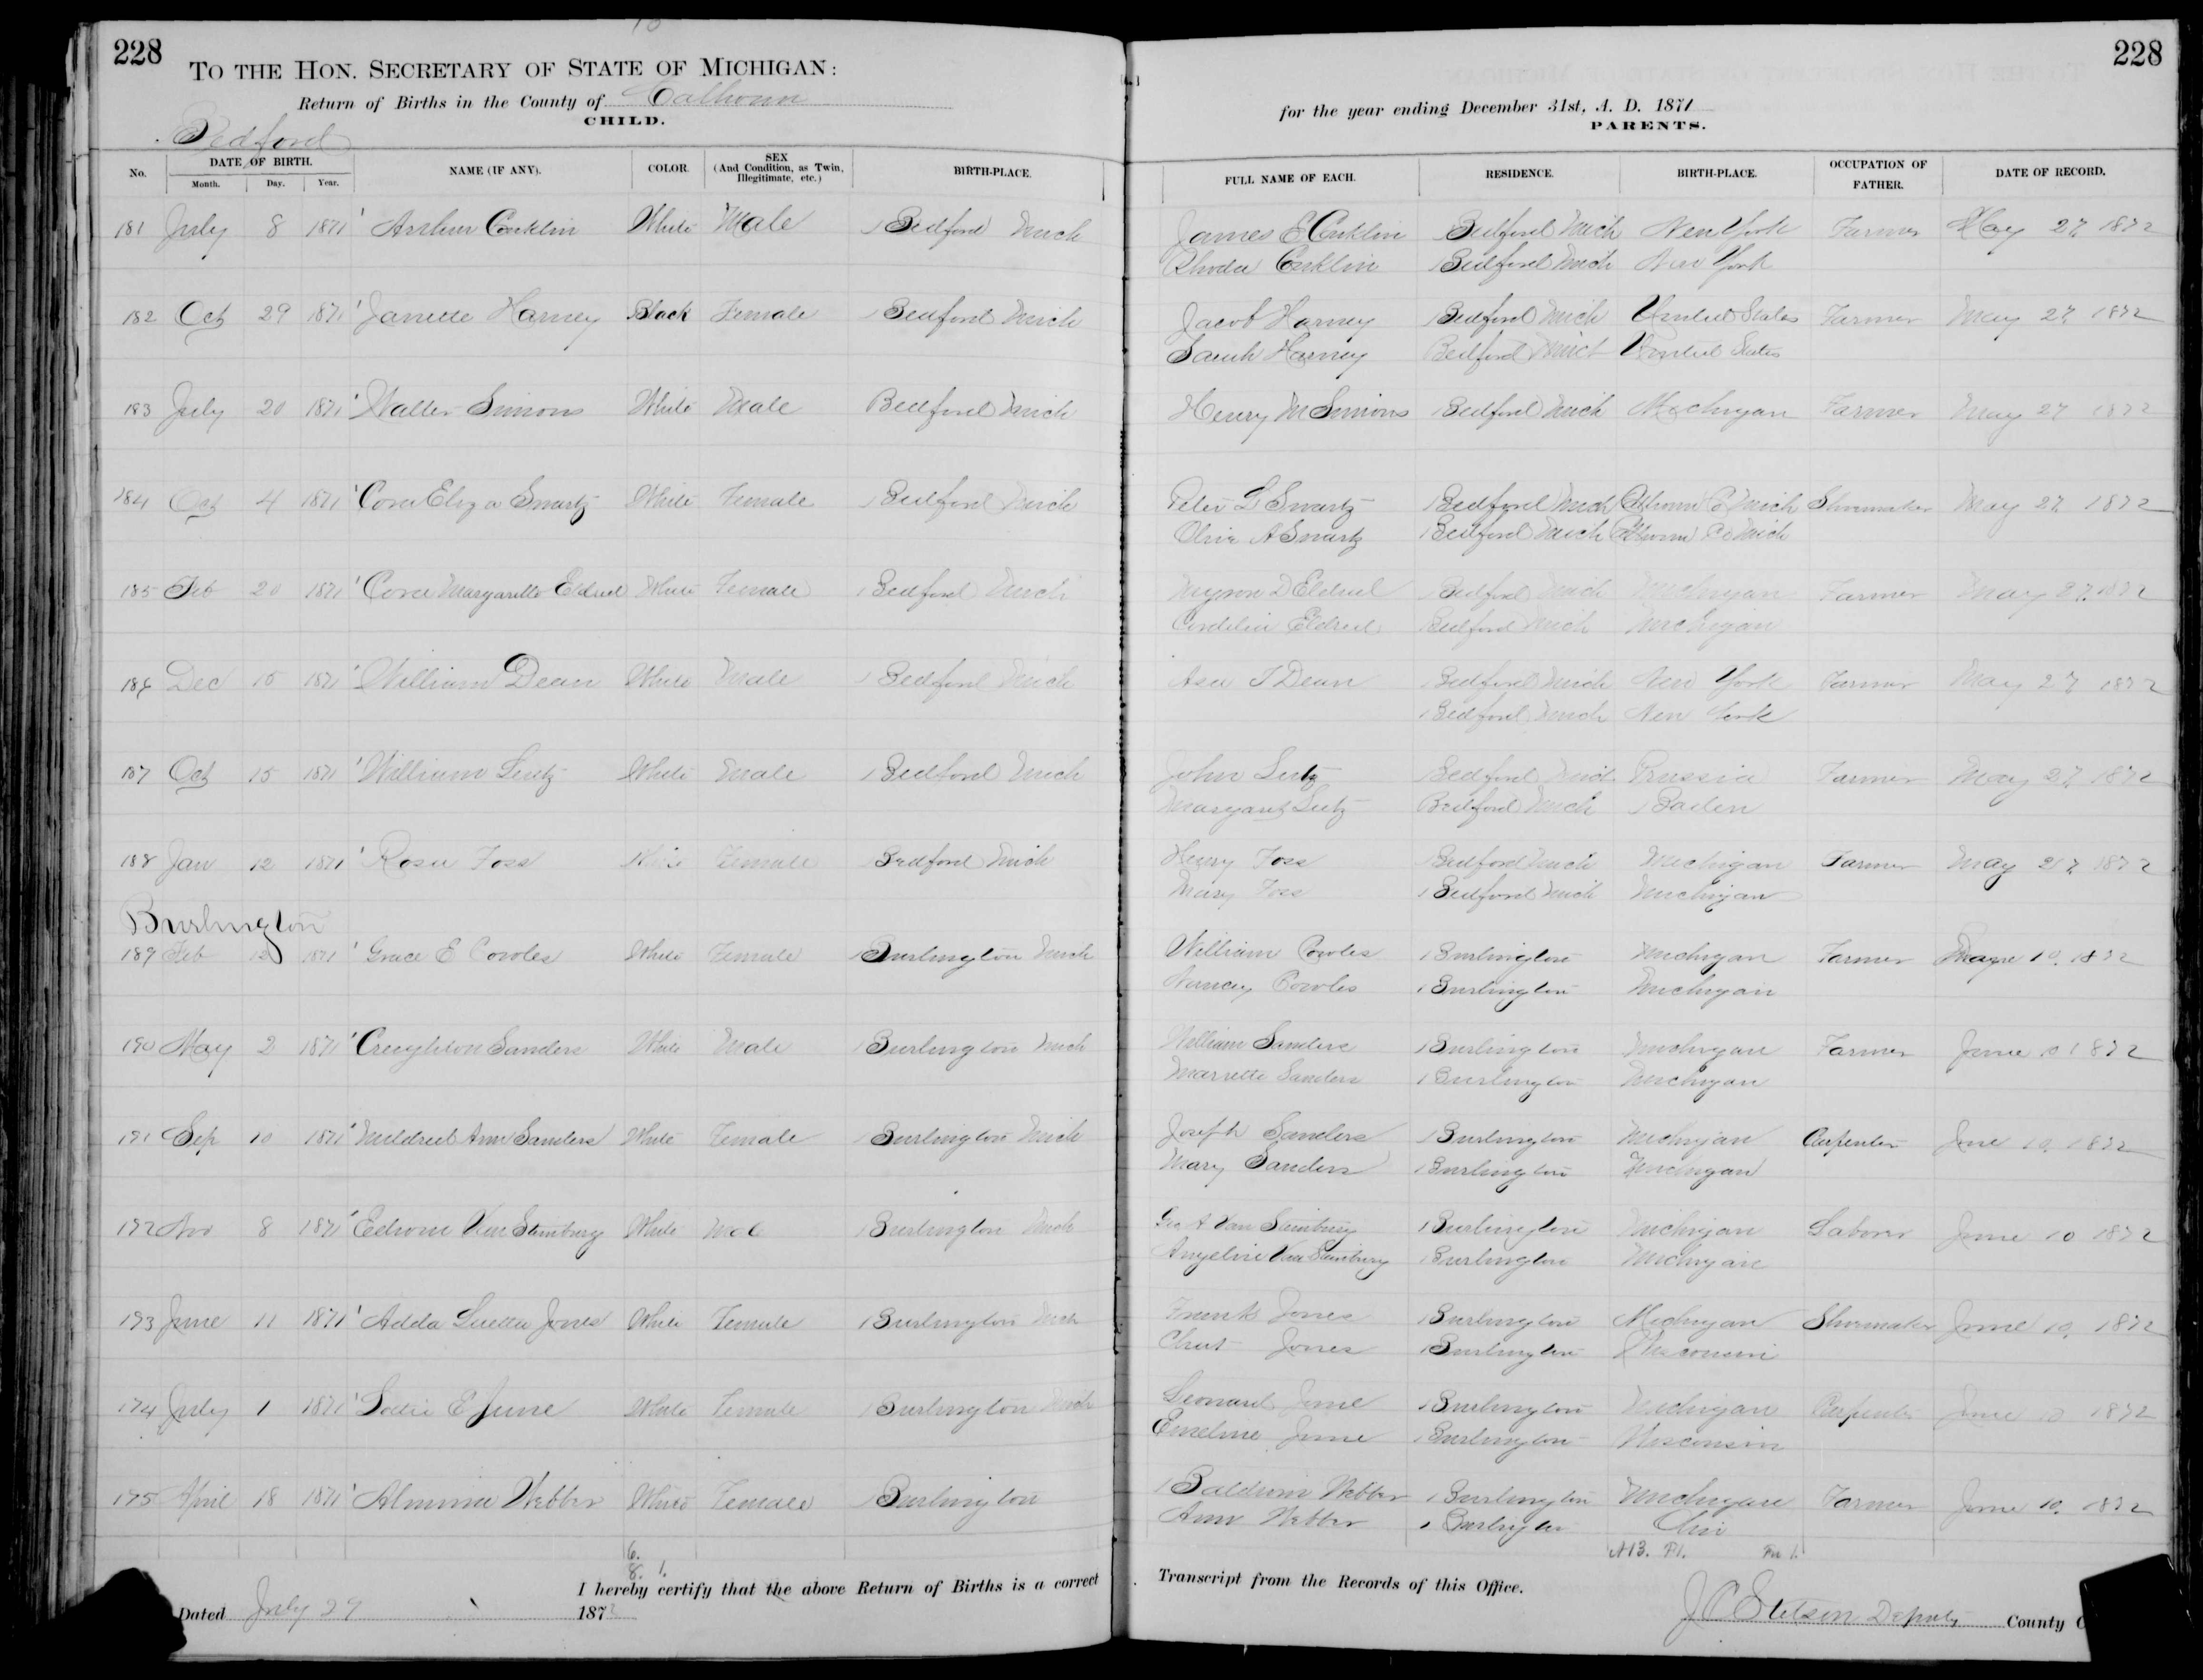 228
TO THE HON. SECRETARY OF STATE OF MICHIGAN:
Return of Births in the County of Calhoun
CHILD.
Bedford
No. DATE OF BIRTH. NAME (IF ANY). COLOR. SEX (And Condition, as Twin, Illegitimate, etc.) BIRTH-PLACE.
Month. Day. Year.
181 July 8 1871 Arthur Conklin White Male Bedford Mich
182 Oct 29 1871 Janette Harney Black Female Bedford Mich
183 July 20 1871 Walter Simons White Male Bedford Mich
184 Oct 4 1871 Cora Eliza Swartz White Female Bedford Mich
185 Feb 20 1871 Cora Margarette Eldred White Female Bedford Mich
186 Dec 15 1871 William Dean White Male Bedford Mich
187 Oct 15 1871 William Lutz White Male Bedford Mich
188 Jan 12 1871 Rosa Foss White Female Bedford Mich
Burlington
189 Feb 12 1871 Grace E Cowles White Female Burlington Mich
190 May 2 1871 Creighton Sanders White Male Burlington Mich
191 Sep 10 1871 Mildred Ann Sanders White Female Burlington Mich
192 Nov 8 1871 Van White Male Burlington Mich
193 June 11 1871 Adda Luella Jones White Female Burlington Mich
194 July 1 1871 E June White Female Burlington Mich
195 April 18 1871 Almina Webber White Female Burlington
6.
8. 1.
I hereby certify that the above Return of Births is a correct
Dated July 29 187
228
for the year ending December 31st, A. D. 1871
PARENTS.
FULL NAME OF EACH. RESIDENCE. BIRTH-PLACE. OCCUPATION OF FATHER. DATE OF RECORD.
James E Conklin Bedford Mich New York Farmer May 27 1872
Rhoda Conklin Bedford Mich New York
Jacob Harney Bedford Mich United States Farmer May 27 1872
Sarah Harney Bedford Mich United States
Henry M Simons Bedford Mich Michigan Farmer May 27 1872
Peter L Swartz Bedford Mich Calhoun Co Mich Shoemaker May 27 1872
Olive A Swartz Bedford Mich Calhoun Co Mich
Myron D Eldred Bedford Mich Michigan Farmer May 27 1872
Cordelia Eldred Bedford Mich Michigan
Asa T Dean Bedford Mich New York Farmer May 27 1872
Bedford Mich New York
John Lutz Bedford Mich Prussia Farmer May 27 1872
Margaret Lutz Bedford Mich Baden
Henry Foss Bedford Mich Michigan Farmer May 27 1872
Mary Foss Bedford Mich Michigan
William Cowles Burlington Michigan Farmer 10. 1872
Nancy Cowles Burlington Michigan
William Sanders Burlington Michigan Farmer June 10 1872
Marrette Sanders Burlington Michigan
Joseph Sanders Burlington Michigan Carpenter June 10, 1872
Mary Sanders Burlington Michigan
Geo A Van Burlington Michigan Laborer June 10 1872
Angeline Van Burlington Michigan
Frank Jones Burlington Michigan Shoemaker June 10, 1872
Jones Burlington Wisconsin
Leonard June Burlington Michigan Carpenter June 10 1872
Emeline June Burlington Wisconsin
Baldwin Webber Burlington Michigan Farmer June 10. 1872
Ann Webber Burlington Ohio
A13. P1. Fn 1.
Transcript from the Records of this Office.
J C Stetson Deputy County C